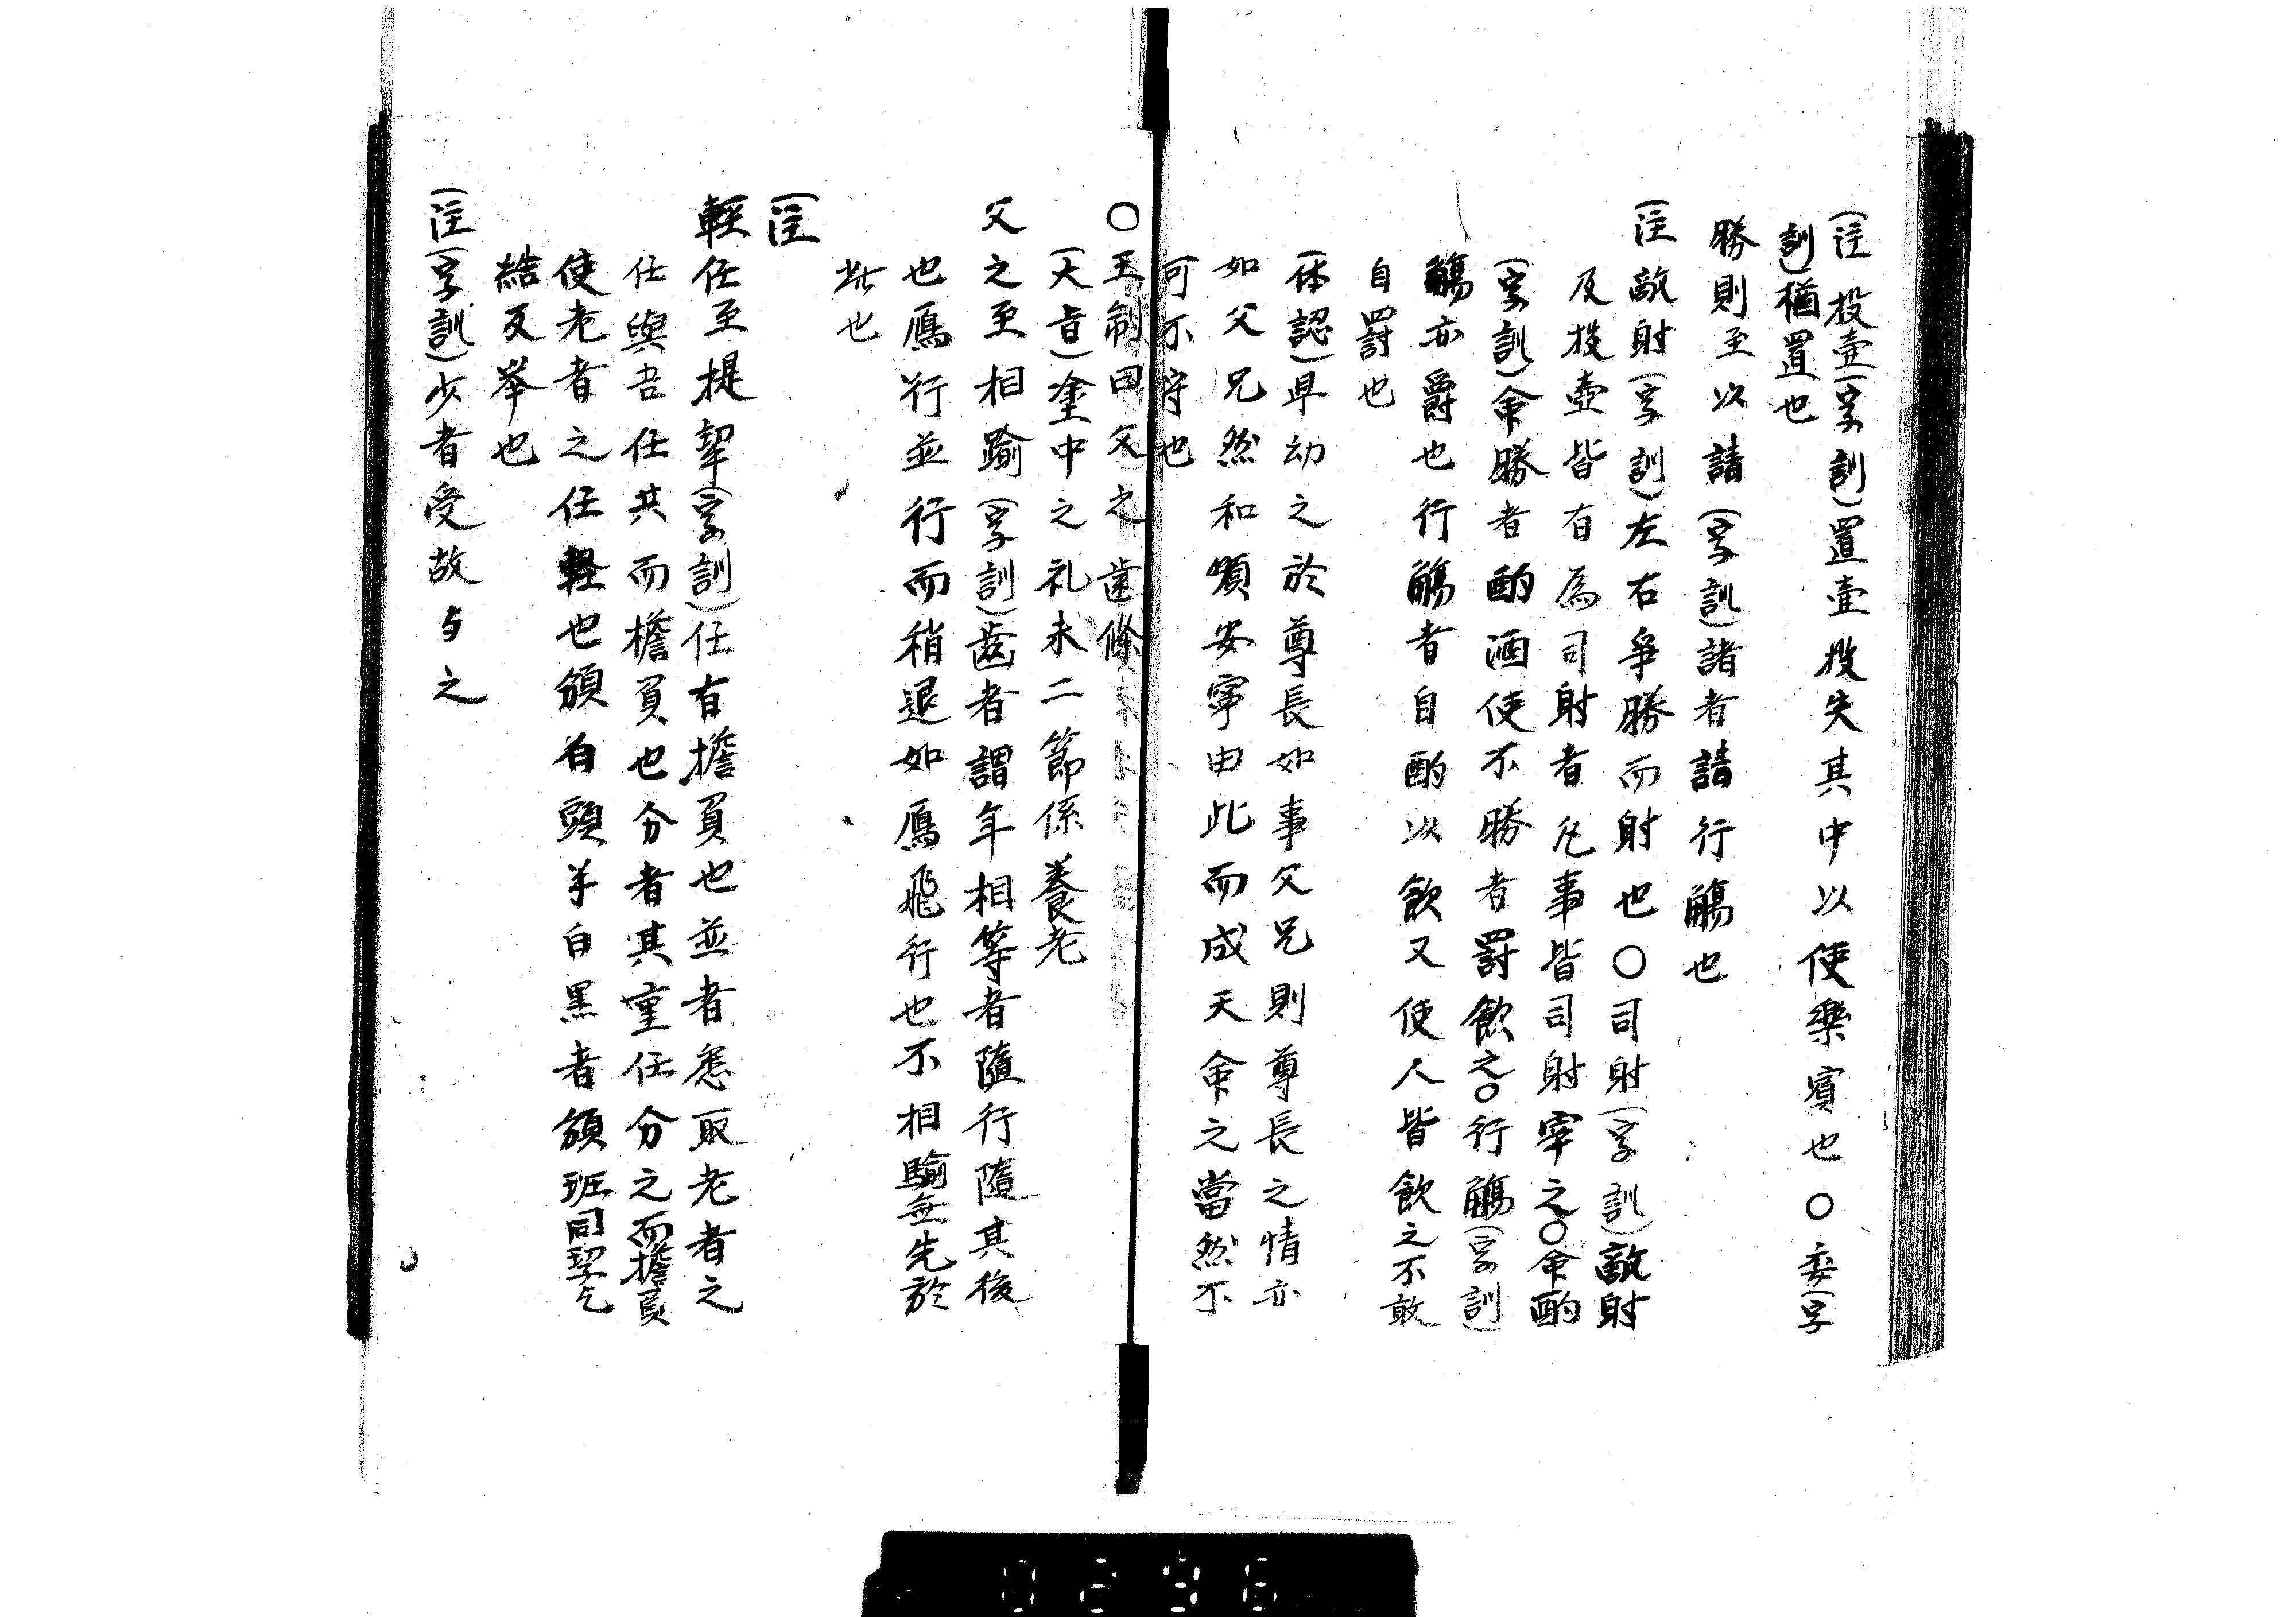 (注投壺(字訓)置壺投失其中以使樂賓也○委(字
訓)猶置也
勝則至以請(字訓)諸者請行觴也
(注敵射(字訓)左右爭勝而射也○司射(字訓)敵射
及投壺皆有為司射者凡事皆司射宰之○命酌
(字訓)命勝者酌酒使不勝者罰飲之○行觴(字訓)
觴亦爵也行觴者自酌以飲又使人皆飲之不敢
自罰也
(体認)卑幼之於尊長如事父兄則尊長之情亦
如父兄然和順安寧由此而成天命之當然不
可不守也
○王制曰父之齒條
(大旨)塗中之礼未二節係養老
父之至相踰(字訓)齒者謂年相等者隨行隨其後
也鴈行並行而稍退如鴈飛行也不相踰無先於
此也
(注
輕任至提挈(字訓)任有擔負也並者悉取老者之
任與吾任共而擔負也分者其重任分之而擔負
使老者之任軽也頒白頭半白黒者頒班同挈乞
結反挙也
(注(字訓)少者受故与之